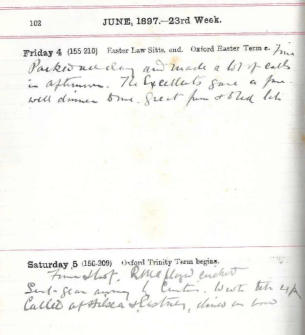 102 JUNE, 1897.—23rd Week.
Friday 4 (155-210) Easter Law Sitts. end. Oxford Easter Term e. Fine
Packed all day and made a lot of calls
in afternoon. The Excellents gave a fare
well dinner to me. great fun
Saturday 5 (156-209) Oxford Trinity Term begins.
Fine & hot. played cricket
Sent gear away by Wrote
Called at & dined on